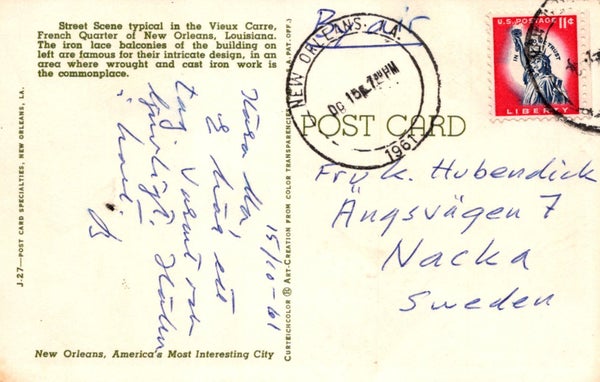 Street Scene typical in the Vieux Carre,
French Quarter of New Orleans, Louisiana.
The iron lace balconies of the building on
left are famous for their intricate design, in
an area where wrought and cast iron work is
the commonplace.
J-27—POST CARD SPECIALTIES, NEW ORLEANS, LA.
15/10-61
Kära Ma,
är här ett
tag. Varmt och
i hast.
New Orleans, America's Most Interesting City
CURTEICHCOLOR ® ART-CREATION FROM COLOR TRANSPARENCIES PAT. OFF.)
NEW ORLEANS, LA.
15
PM
1961
U.S. POSTAGE 11¢
LIBERTY
POST CARD
Fru K. Hubendick
Ängsvägen 7
Nacka
Sweden